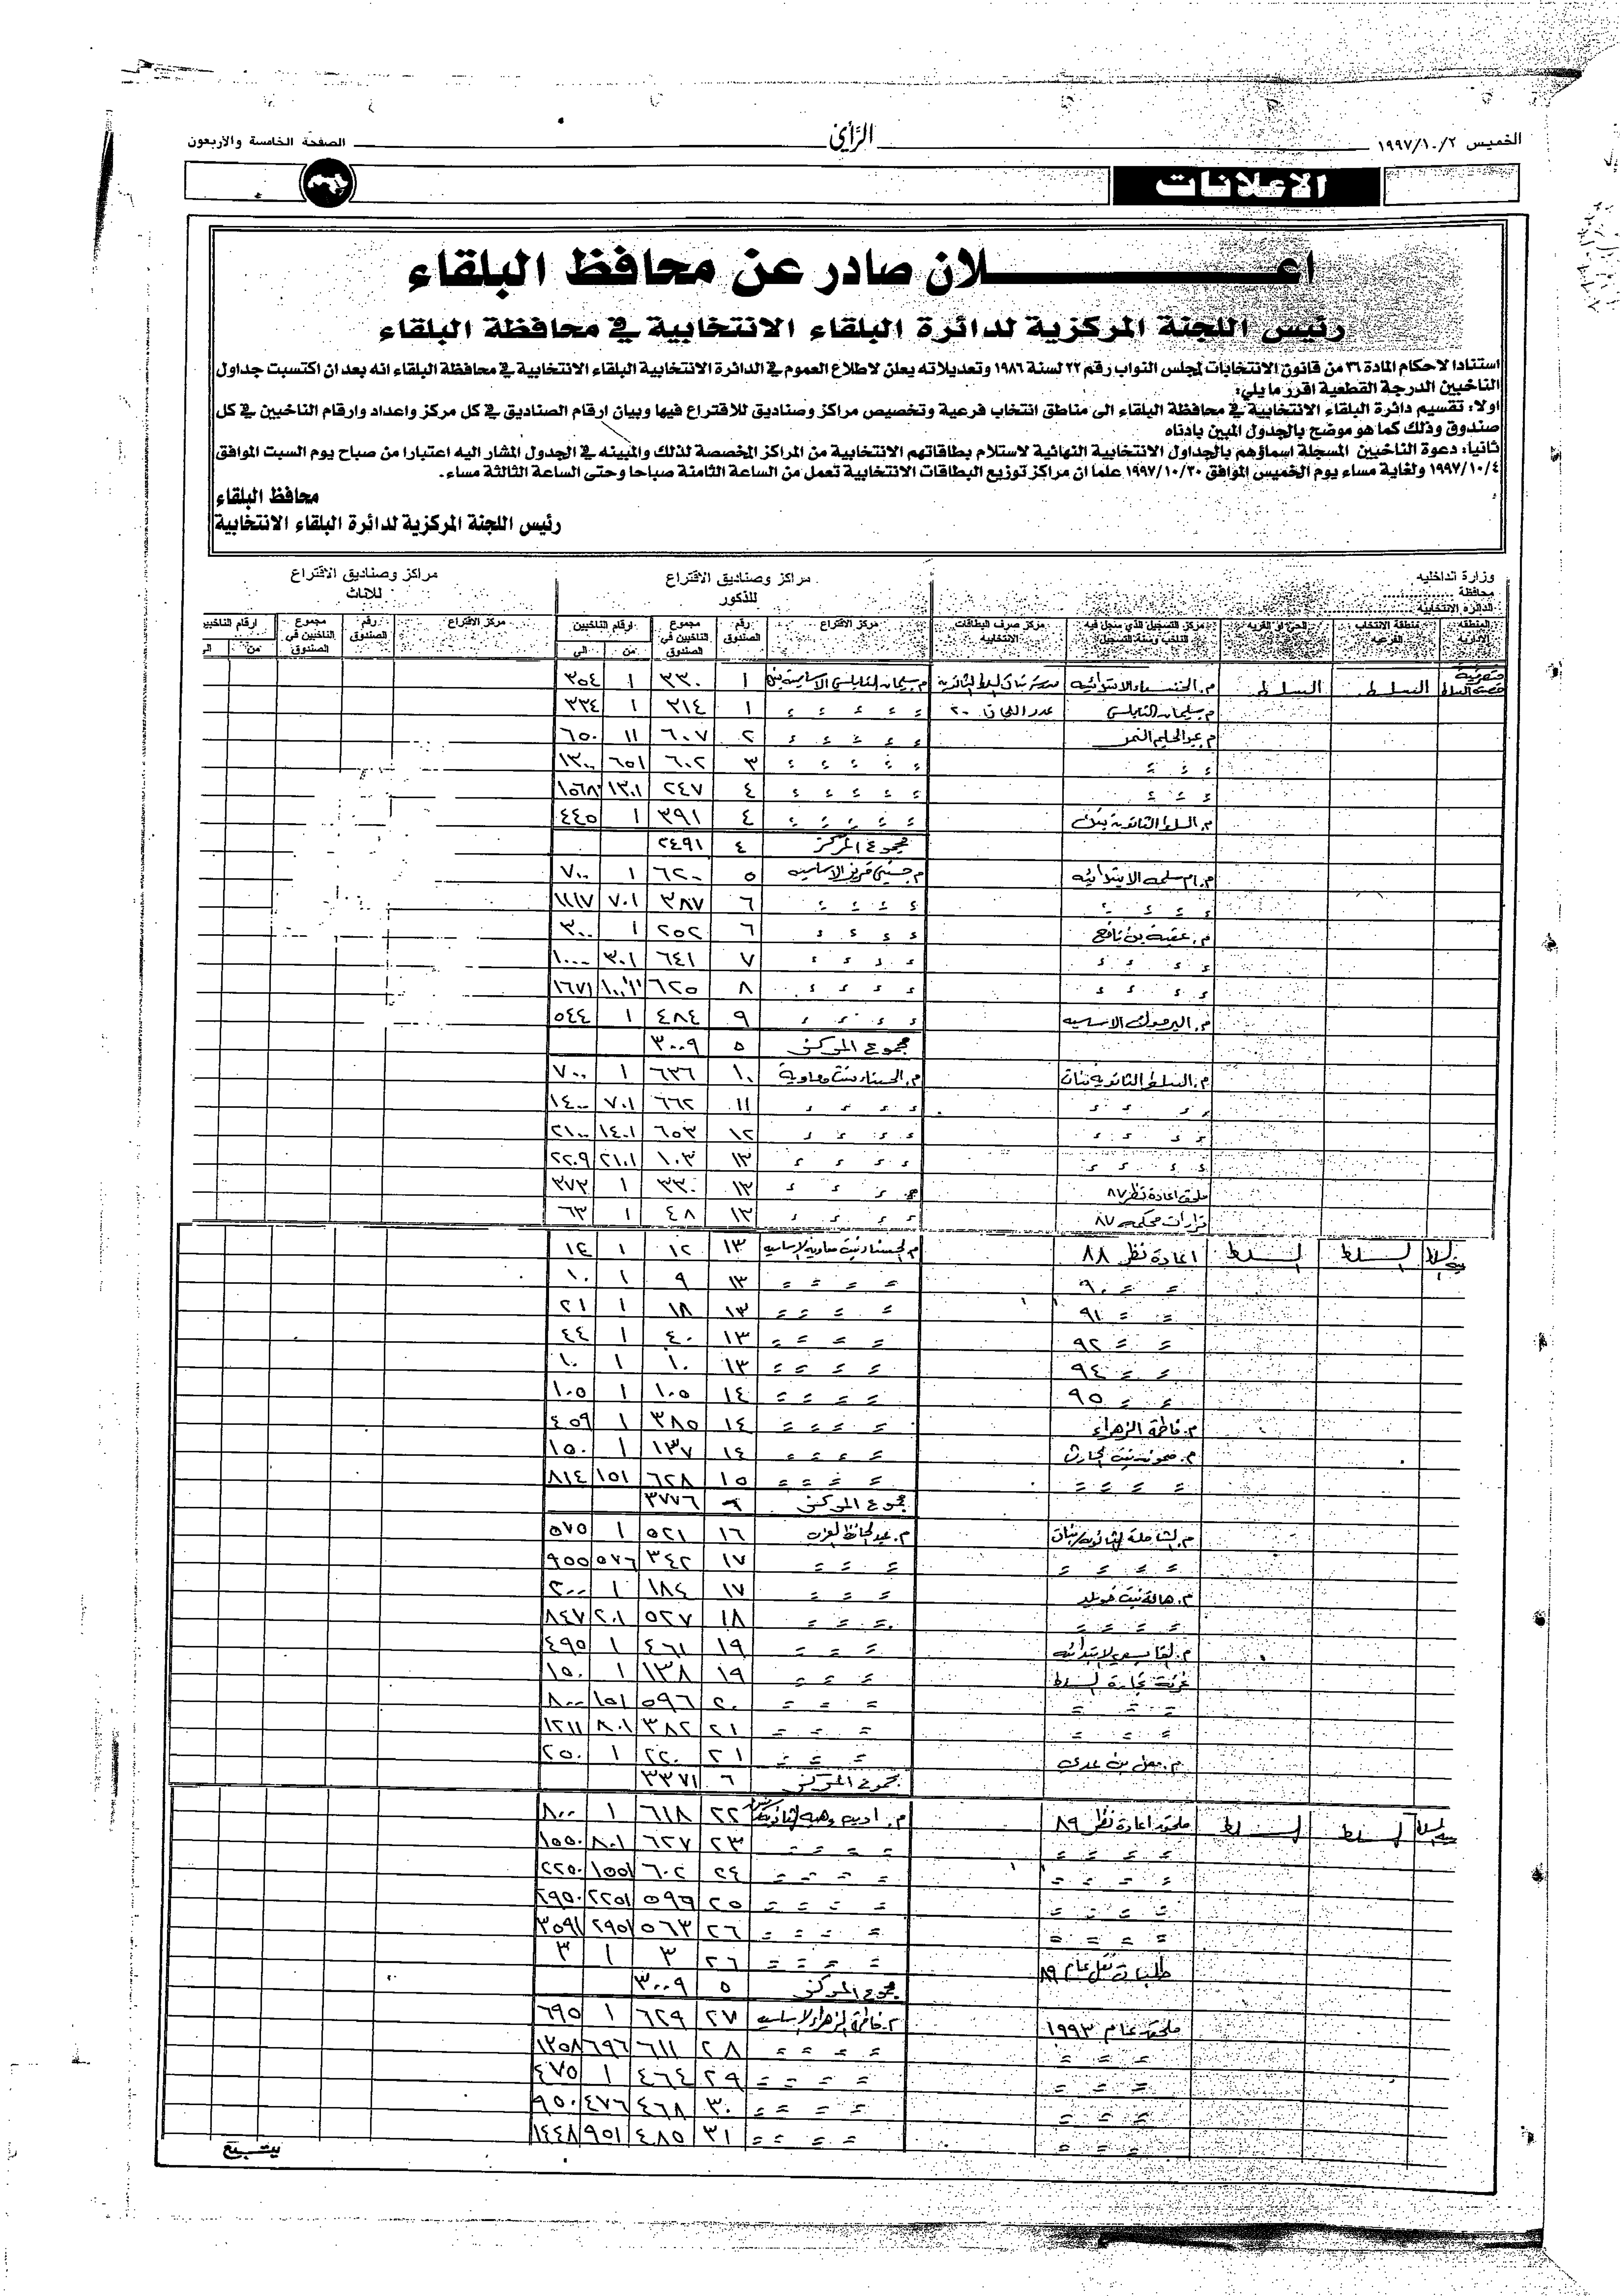 الخميس ١٩٩٧/١٠/٢
الرأي
الصفحة الخامسة والأربعون
الاعلانات
اعـــلان صادر عن محافظ البلقاء
رئيس اللجنة المركزية لدائرة البلقاء الانتخابية في محافظة البلقاء
استنادا لاحكام المادة ٣٦ من قانون الانتخابات لمجلس النواب رقم ٢٢ لسنة ١٩٨٦ وتعديلاته يعلن لاطلاع العموم في الدائرة الانتخابية البلقاء الانتخابية في محافظة البلقاء انه بعد ان اكتسبت جداول
الناخبين الدرجة القطعية اقرر ما يلي:
اولا: تقسيم دائرة البلقاء الانتخابية في محافظة البلقاء الى مناطق انتخاب فرعية وتخصيص مراكز وصناديق للاقتراع فيها وبيان ارقام الصناديق في كل مركز واعداد وارقام الناخبين في كل
صندوق وذلك كما هو موضح بالجدول المبين بادناه
ثانيا: دعوة الناخبين المسجلة اسماؤهم بالجداول الانتخابية النهائية لاستلام بطاقاتهم الانتخابية من المراكز المخصصة لذلك والمبينه في الجدول المشار اليه اعتبارا من صباح يوم السبت الموافق
١٩٩٧/١٠/٤ ولغاية مساء يوم الخميس الموافق ١٩٩٧/١٠/٣٠ علما ان مراكز توزيع البطاقات الانتخابية تعمل من الساعة الثامنة صباحا وحتى الساعة الثالثة مساء.
محافظ البلقاء
رئيس اللجنة المركزية لدائرة البلقاء الانتخابية
وزارة الداخليه
محافظة
الدائرة الانتخابية
مراكز وصناديق الاقتراع
للذكور
مراكز وصناديق الاقتراع
للاناث
المنطقة الادارية منطقة الانتخاب الفرعيه الحي او القريه مركز التسجيل الذي سجل فيه الناخب وسنة التسجيل مركز صرف البطاقات الانتخابية مركز الاقتراع رقم الصندوق مجموع الناخبين في الصندوق ارقام الناخبين من الى مركز الاقتراع رقم الصندوق مجموع الناخبين في الصندوق ارقام الناخبين من الى
السلط السلط م. الخنساء الابتدائيه ١ ٣٣٠ ١ ٣٥٤
م سليمان النابلسي عدد اللجان ٢٠ ١ ٣١٤ ١ ٣٣٤
م عبد الحليم النمر ٢ ٦٠٧ ١١ ٦٥٠
٣ ٦٠٢ ٦٥١ ١٣٠٠
٤ ٢٤٧ ١٣٠١ ١٥٦٨
م. السلط الثانوية بنين ٤ ٣٩١ ١ ٤٤٥
مجموع المركز ٤ ٢٤٩١
م. ام سلمه الابتدائيه م حسني فريز الاساسيه ٥ ٦٢٠ ١ ٧٠٠
٦ ٣٨٧ ٧٠١ ١١١٧
م. عقبة بن نافع ٦ ٢٥٢ ١ ٣٠٠
٧ ٦٤١ ٣٠١ ١٠٠٠
٨ ٦٢٥ ١٠٠١ ١٦٧١
م. اليرموك الاساسيه ٩ ٤٨٤ ١ ٥٤٤
مجموع المركز ٥ ٣٠٠٩
م. السلط الثانوية بنات ١٠ ٦٣٦ ١ ٧٠٠
١١ ٦٦٢ ٧٠١ ١٤٠٠
١٢ ٦٥٣ ١٤٠١ ٢١٠٠
١٣ ١٠٣ ٢١٠١ ٢٢٠٩
ملحق اعادة نظر ٨٧ ١٣ ٣٣٠ ١ ٣٧٣
قرارات محكمه ٨٧ ١٣ ٤٨ ١ ٦٣
السلط السلط اعادة نظر ٨٨ ١٣ ١٢ ١ ١٤
٩٠ ١٣ ٩ ١ ١٠
٩١ ١٣ ١٨ ١ ٢١
٩٢ ١٣ ٤٠ ١ ٤٤
٩٤ ١٣ ١٠ ١ ١٠
٩٥ ١٤ ١٠٥ ١ ١٠٥
م. فاطمة الزهراء ١٤ ٣٨٥ ١ ٤٥٩
١٤ ١٣٧ ١ ١٥٠
١٥ ٦٢٨ ١٥١ ٨١٤
مجموع المركز ٦ ٣٧٧٦
م. الشاملة الثانوية بنات ١٦ ٥٢١ ١ ٥٧٥
١٧ ٣٤٢ ٥٧٦ ٩٥٥
م. هالة بنت خويلد ١٧ ١٨٤ ١ ٢٠٠
١٨ ٥٢٧ ٢٠١ ٨٤٧
١٩ ٤٦١ ١ ٤٩٥
غرفة تجارة السلط ١٩ ١٣٨ ١ ١٥٠
٢٠ ٥٩٦ ١٥١ ٨٠٠
٢١ ٣٨٢ ٨٠١ ١٢١١
٢١ ٢٢٠ ١ ٢٥٠
مجموع المركز ٦ ٣٣٧١
السلط السلط ملحق اعادة نظر ٨٩ ٢٢ ٦١٨ ١ ٨٠٠
٢٣ ٦٢٧ ٨٠١ ١٥٥٠
٢٤ ٦٠٢ ١٥٥١ ٢٢٥٠
٢٥ ٥٩٦ ٢٢٥١ ٢٩٥٠
٢٦ ٥٦٣ ٢٩٥١ ٣٥٩١
طلبات نقل عام ٨٩ ٢٦ ٣ ١ ٣
مجموع المركز ٥ ٣٠٠٩
ملحق عام ١٩٩٣ م. فاطمة الزهراء الاساسيه ٢٧ ٦٢٩ ١ ٦٩٥
٢٨ ٦١١ ٦٩٦ ١٣٥٨
٢٩ ٤٦٤ ١ ٤٧٥
٣٠ ٤٦٨ ٤٧٦ ٩٥٠
٣١ ٤٨٥ ٩٥١ ١٤٤٨
يتبع